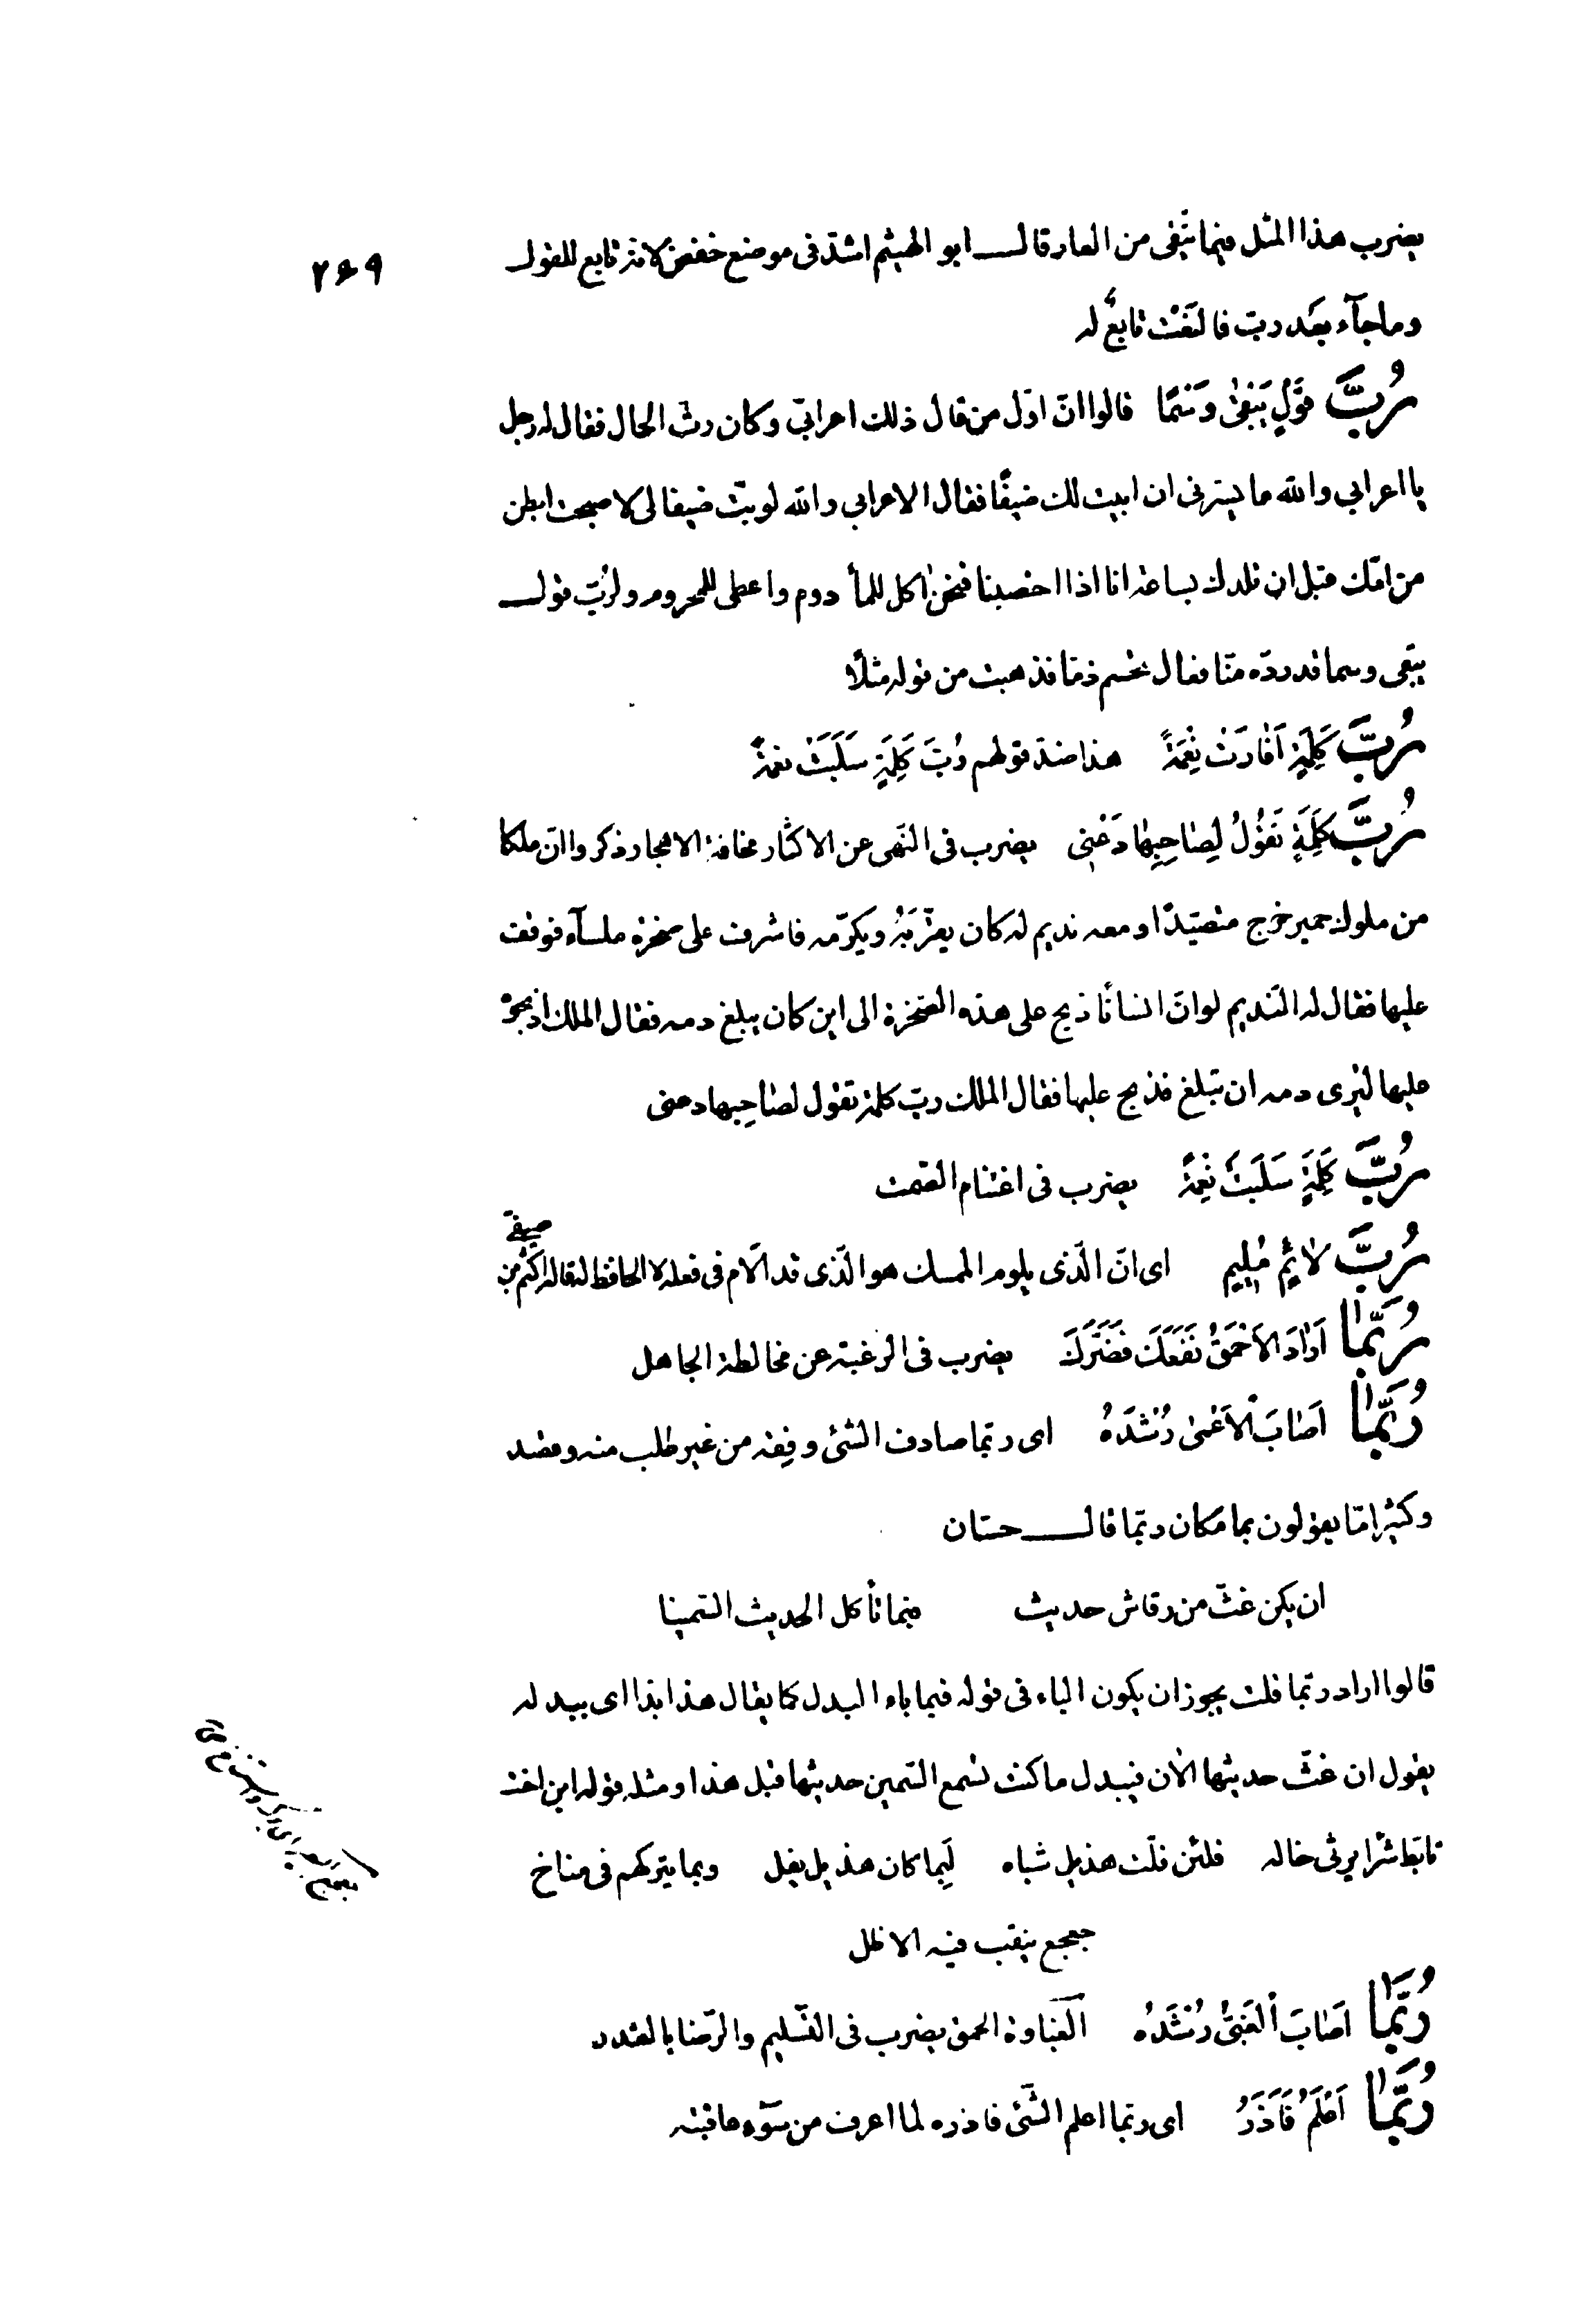 ۲۶۹
يضرب هذا المثل فيما يتّقى من العار قال ابو الهيثم اشدّ فى موضع خفض لانه تابع للقول
وما جآء بعد ربّ فالنّعت تابعٌ له
رُبَّ قَوْلٍ يَبْقىٰ وَسْمًا قالوا انّ اوّل من قال ذلك اعرابىّ وكان رثّ الحال فقال له رجل
يا اعرابى والله ما يسّرنى ان ابيت لك ضيفًا فقال الاعرابى والله لو بتّ ضيفا لى لاصبحت ابطن
من امّك قبل ان تلدك بساعة انا اذا اخصبنا فنحن اٰكل للمأدوم واعطى للمحروم ولربّ قول
يبقى وسما قد ردّه منّا فعال تحسم ذمّا فذهبت من قوله مثلًا
رُبَّ كَلِمَةٍ اَفادَتْ نِعْمَةً هذا ضدّ قولهم رُبَّ كَلِمَةٍ سَلَبَتْ نعمةً
رُبَّ كَلِمَةٍ تَقُولُ لِصٰاحِبِهٰا دَعْنِى يضرب فى النّهى عن الاكثار مخافة الاهجار ذكروا انّ ملكا
من ملوك حمير خرج متصيّدًا ومعه نديم له كان يقرّبَهُ ويكرّمه فاشرف على صخرة ملسآء فوقف
عليها فقال له النّديم لو انّ انسانًا ذبح على هذه الصّخرة الى اين كان يبلغ دمه فقال الملك اذبحوهُ
عليها ليرى دمه اين تبلغ فذبح عليها فقال الملك ربّ كلمة تقول لصٰاحِبها دعنى
رُبَّ كَلِمَةٍ سَلَبَتْ نِعْمَةً يضرب فى اغتنام الصّمت
رُبَّ لاٰئِمٍ مُلِيمٍ اى انّ الّذى يلوم الممسك هو الّذى قد الٓام فى فعله لا الحافظ له قاله اكثم بن صيفىّ
رُبَّمٰا اَرٰادَ الاَحْمَقُ نَفْعَكَ فَضَرَّكَ يضرب فى الرّغبة عن مخالطة الجاهل
رُبَّمٰا اَصٰابَ الْاَعْمىٰ رُشْدَهُ اى ربّما صادف الشّئ وفقه من غير طلب منه وقصد
وكثيرا مّا يقولون بما مكان ربّما قال حسّان
ان يكن غثّ من رقاش حديث فبما نأكل الحديث السّمينا
قالوا اراد ربّما قلت يجوز ان يكون الباء فى قوله فبما باء البدل كما يقال هذا بذا اى ببدله
يقول ان غثّ حديثها الاٰن فببدل ما كنت تسمع السّمين حديثها قبل هذا ومثله قوله ابن اخت
تابّط شرّا يرثى خاله فلئن فلّت هذيل شباه لَبِما كان هذيل يفل وبما يتركهم فى مناخ
جعجع ينقب فيه الاظل
رُبَّمٰا اَصٰابَ الْغَبِىُّ رُشْدَهُ الغباوة الحمق يضرب فى التّسليم والرّضا بالقدر
رُبَّمٰا اَعْلَمُ فَاَذَرُ اى ربّما اعلم الشّئ فاذره لما اعرف من سوٓء عاقبته